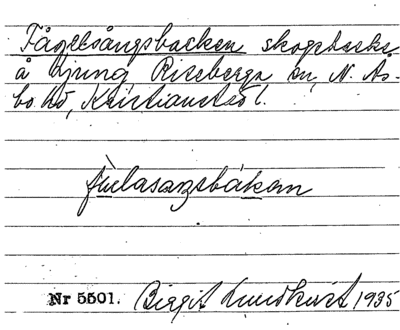 Fågelsångsbacken skogsbacke
å Ljung Riseberga sn, N. Ås-
bo hd, Kristianstad l.
fúlasaŋsbákan
Nr 5501. Birgit Lundkvist 1935